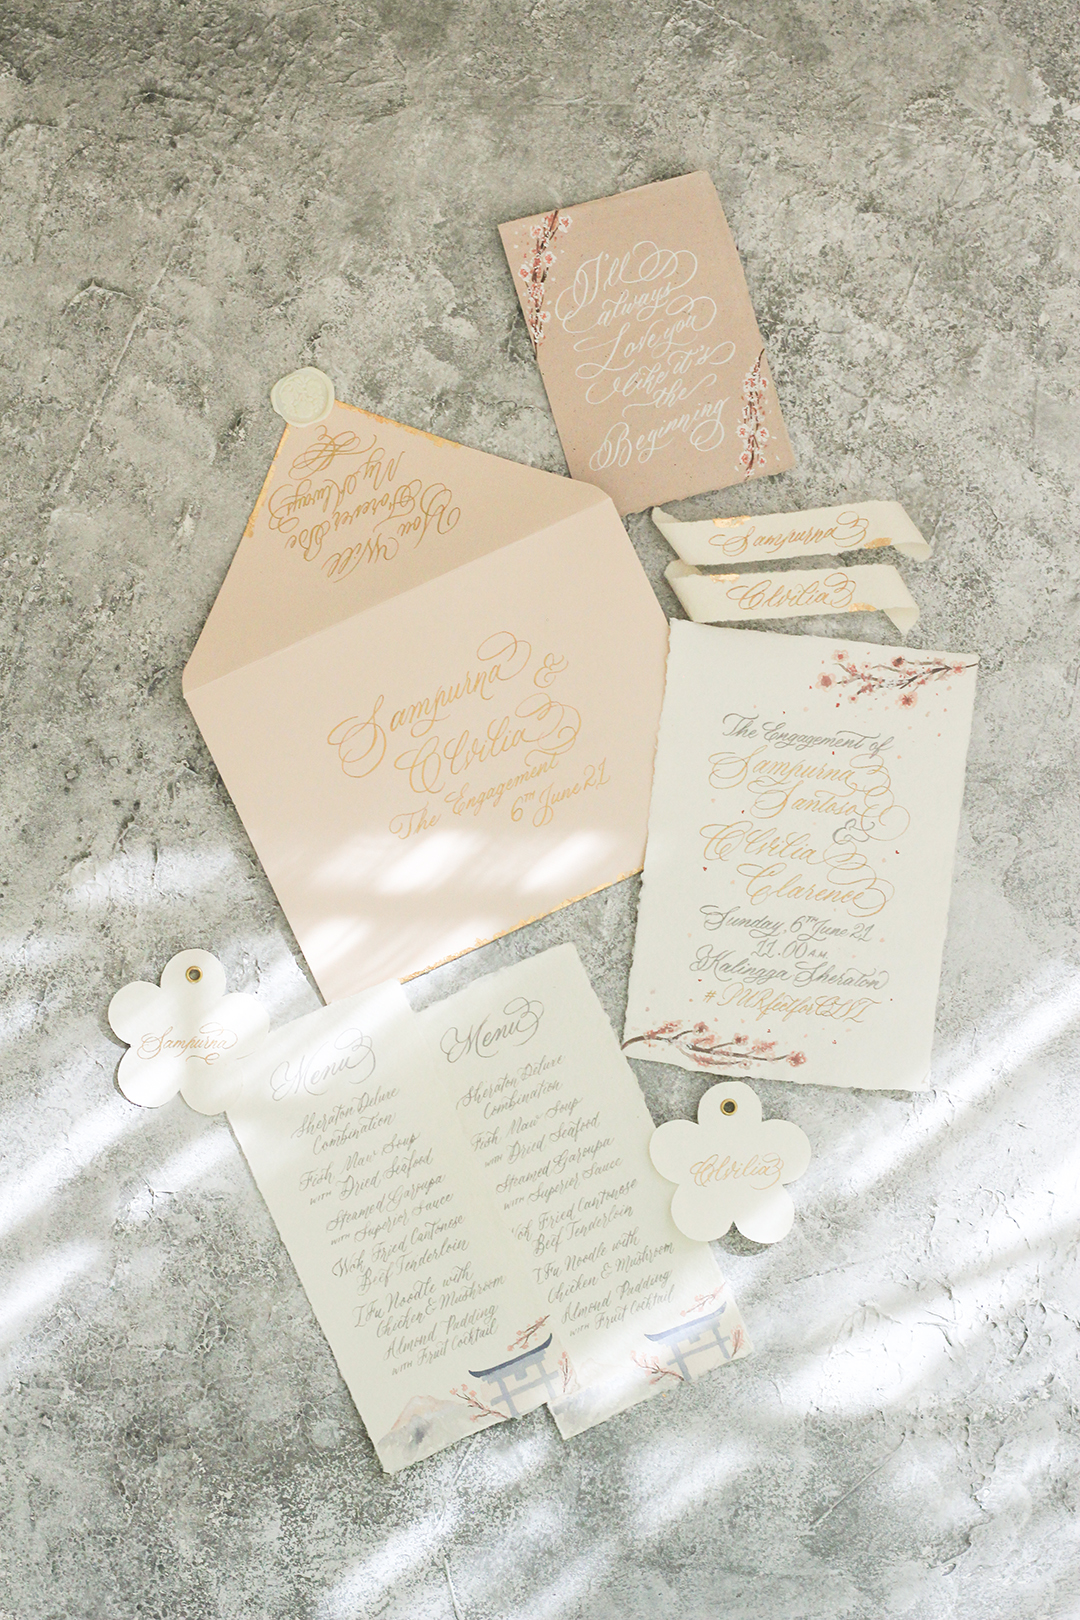 I'll
always
Love you
like it's
the
Beginning
You Will
Forever Be
My Always
Sampurna
Clvilia
Sampurna &
Clvilia
The Engagement
6TH June 21
The Engagement of
Sampurna
Santoso
&
Clvilia
Clarence
Sunday, 6TH June 21
11.00 AM
Kalingga Sheraton
Sampurna
Menu
Sheraton Deluxe
Combination
Fish Maw Soup
with Dried Seafood
Steamed Garoupa
with Superior Sauce
Wok Fried Cantonese
Beef Tenderloin
I Fu Noodle with
Chicken & Mushroom
Almond Pudding
with Fruit Cocktail
Menu
Sheraton Deluxe
Combination
Fish Maw Soup
with Dried Seafood
Steamed Garoupa
with Superior Sauce
Wok Fried Cantonese
Beef Tenderloin
I Fu Noodle with
Chicken & Mushroom
Almond Pudding
with Fruit Cocktail
Clvilia